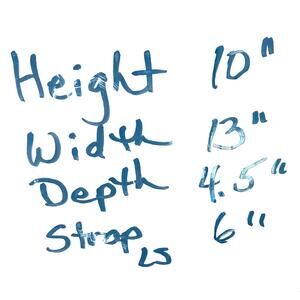 Height 10"
Width 13"
Depth 4.5"
Strap 6"
LS